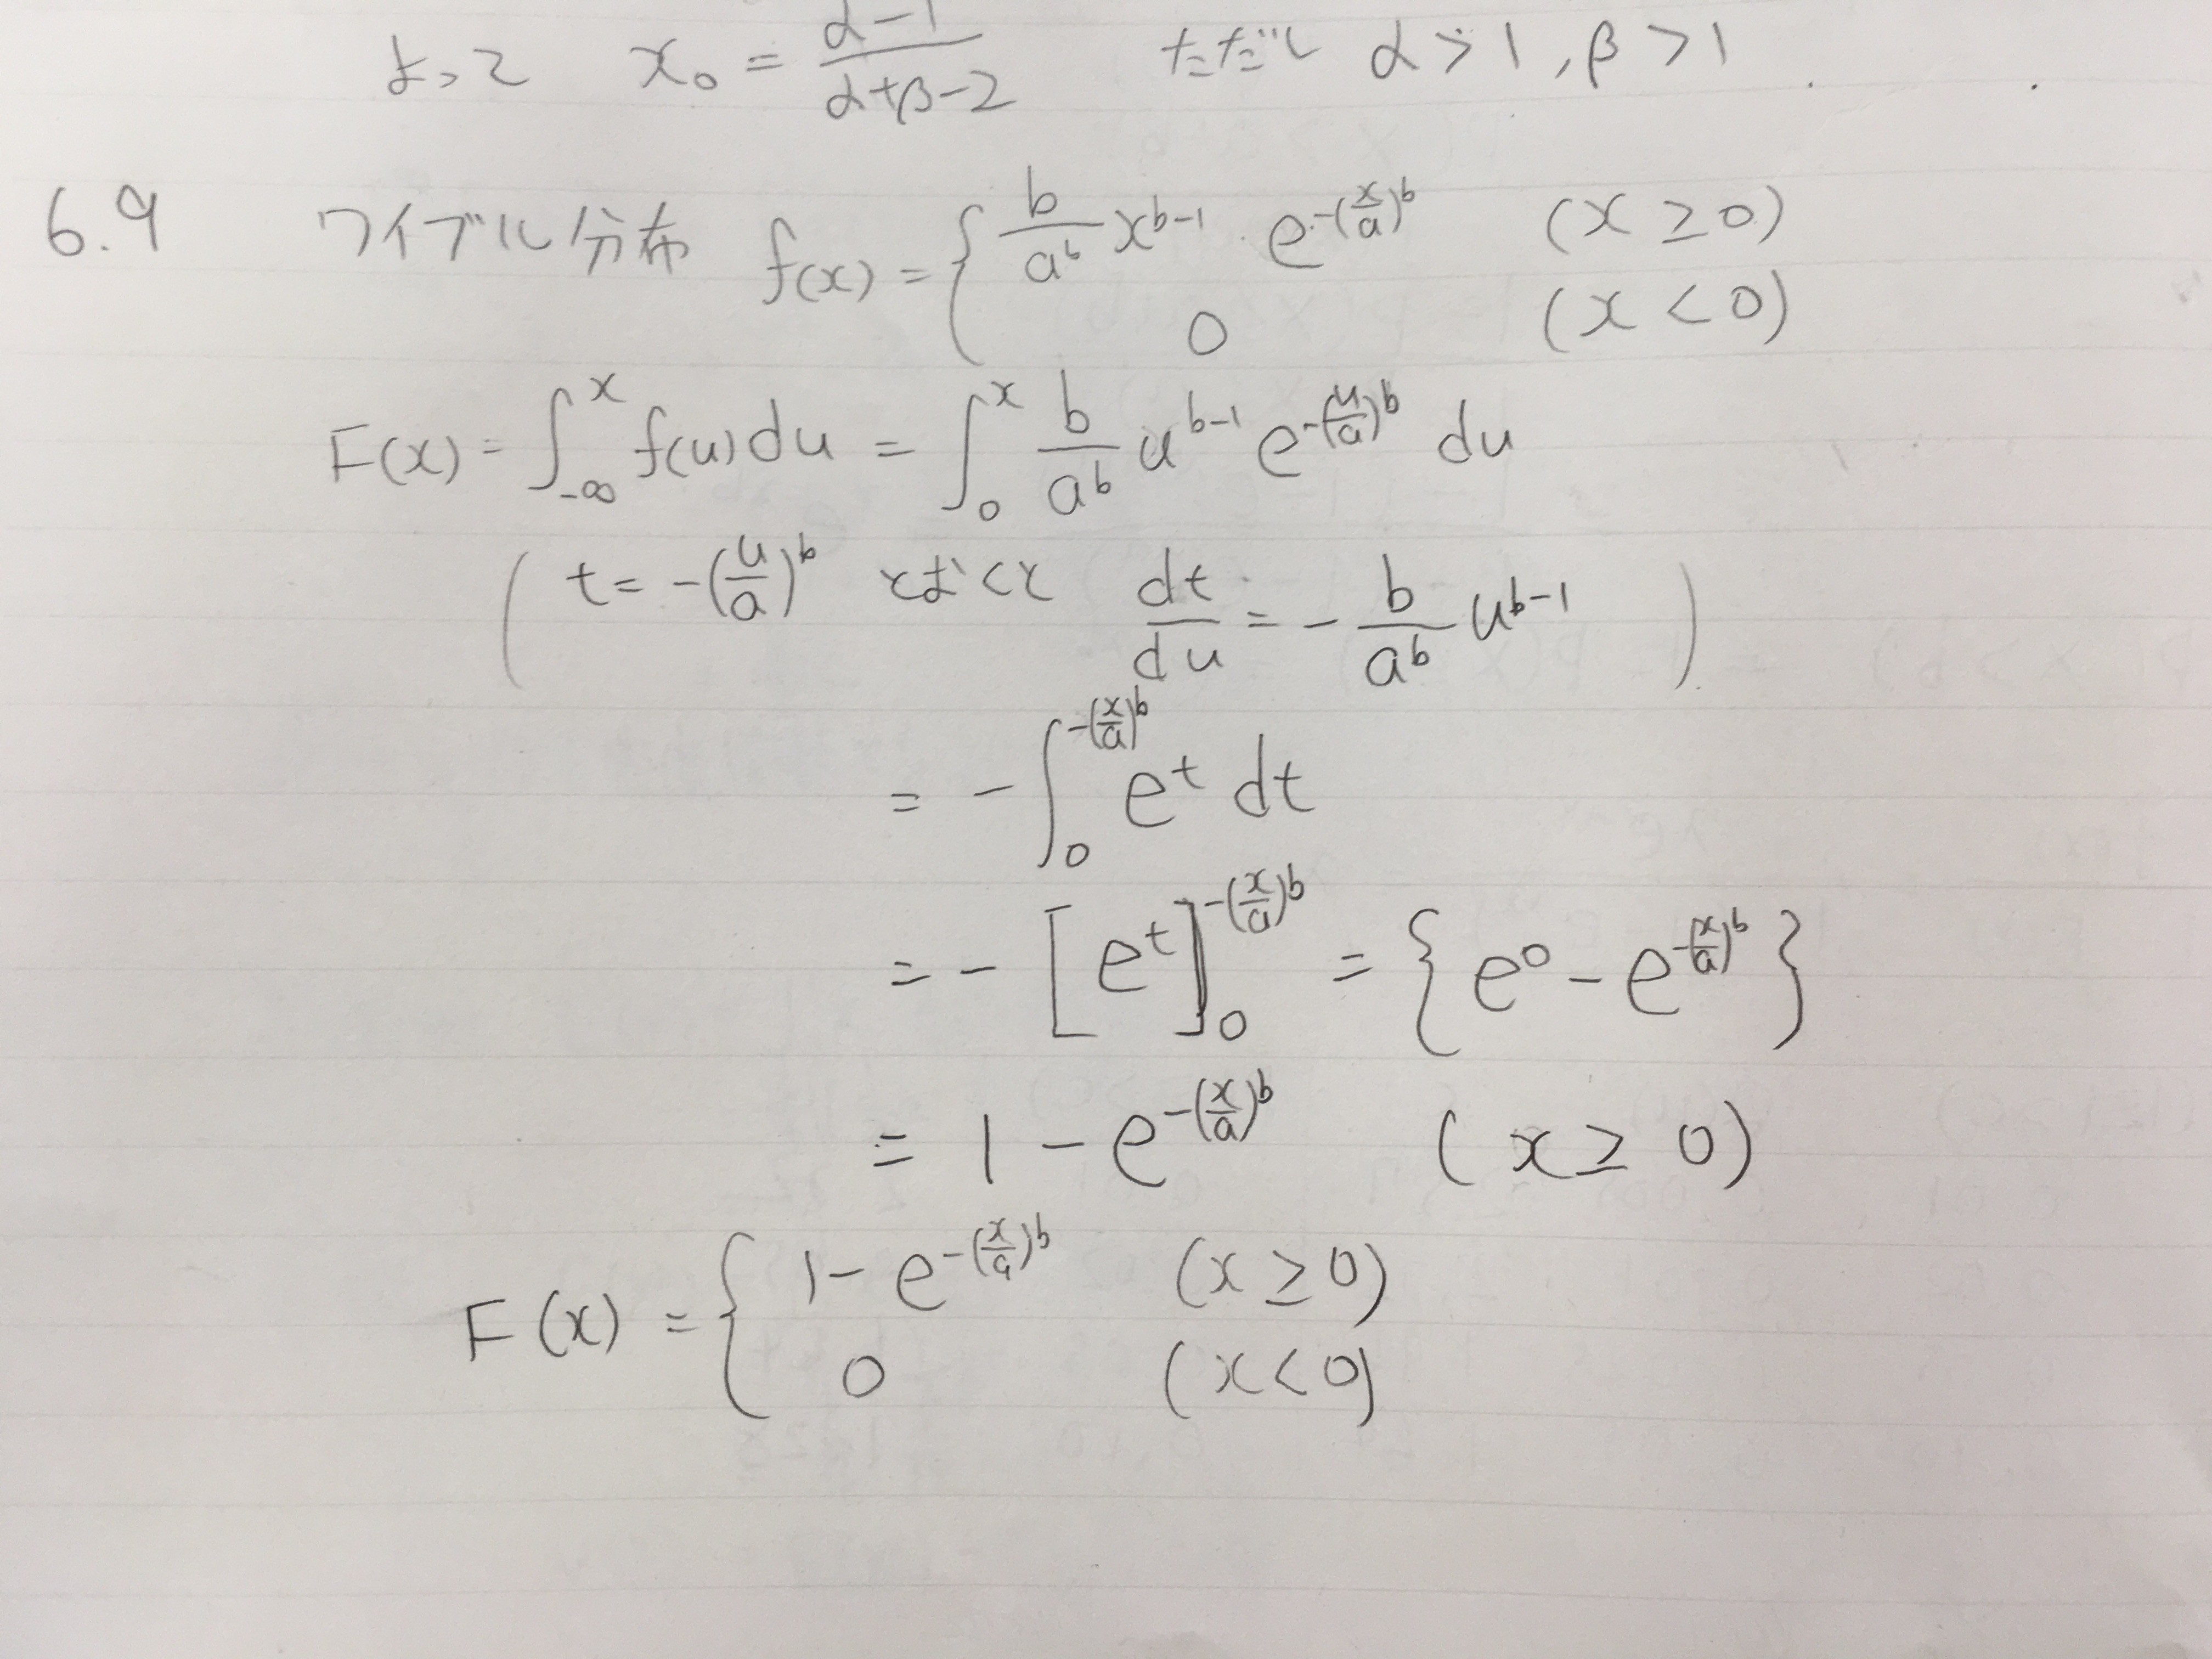 よって x₀ = (α-1)/(α+β-2) ただし α>1, β>1
6.9 ワイブル分布 f(x) = { b/a^b x^(b-1) · e^(-(x/a)^b) (x ≥ 0)
0 (x < 0)
F(x) = ∫_{-∞}^{x} f(u) du = ∫_{0}^{x} b/a^b u^(b-1) e^(-(u/a)^b) du
( t = -(u/a)^b とおくと dt/du = - b/a^b u^(b-1) )
= - ∫_{0}^{-(x/a)^b} e^t dt
= - [e^t]_{0}^{-(x/a)^b} = {e^0 - e^(-(x/a)^b)}
= 1 - e^(-(x/a)^b) (x ≥ 0)
F(x) = { 1 - e^(-(x/a)^b) (x ≥ 0)
0 (x < 0)